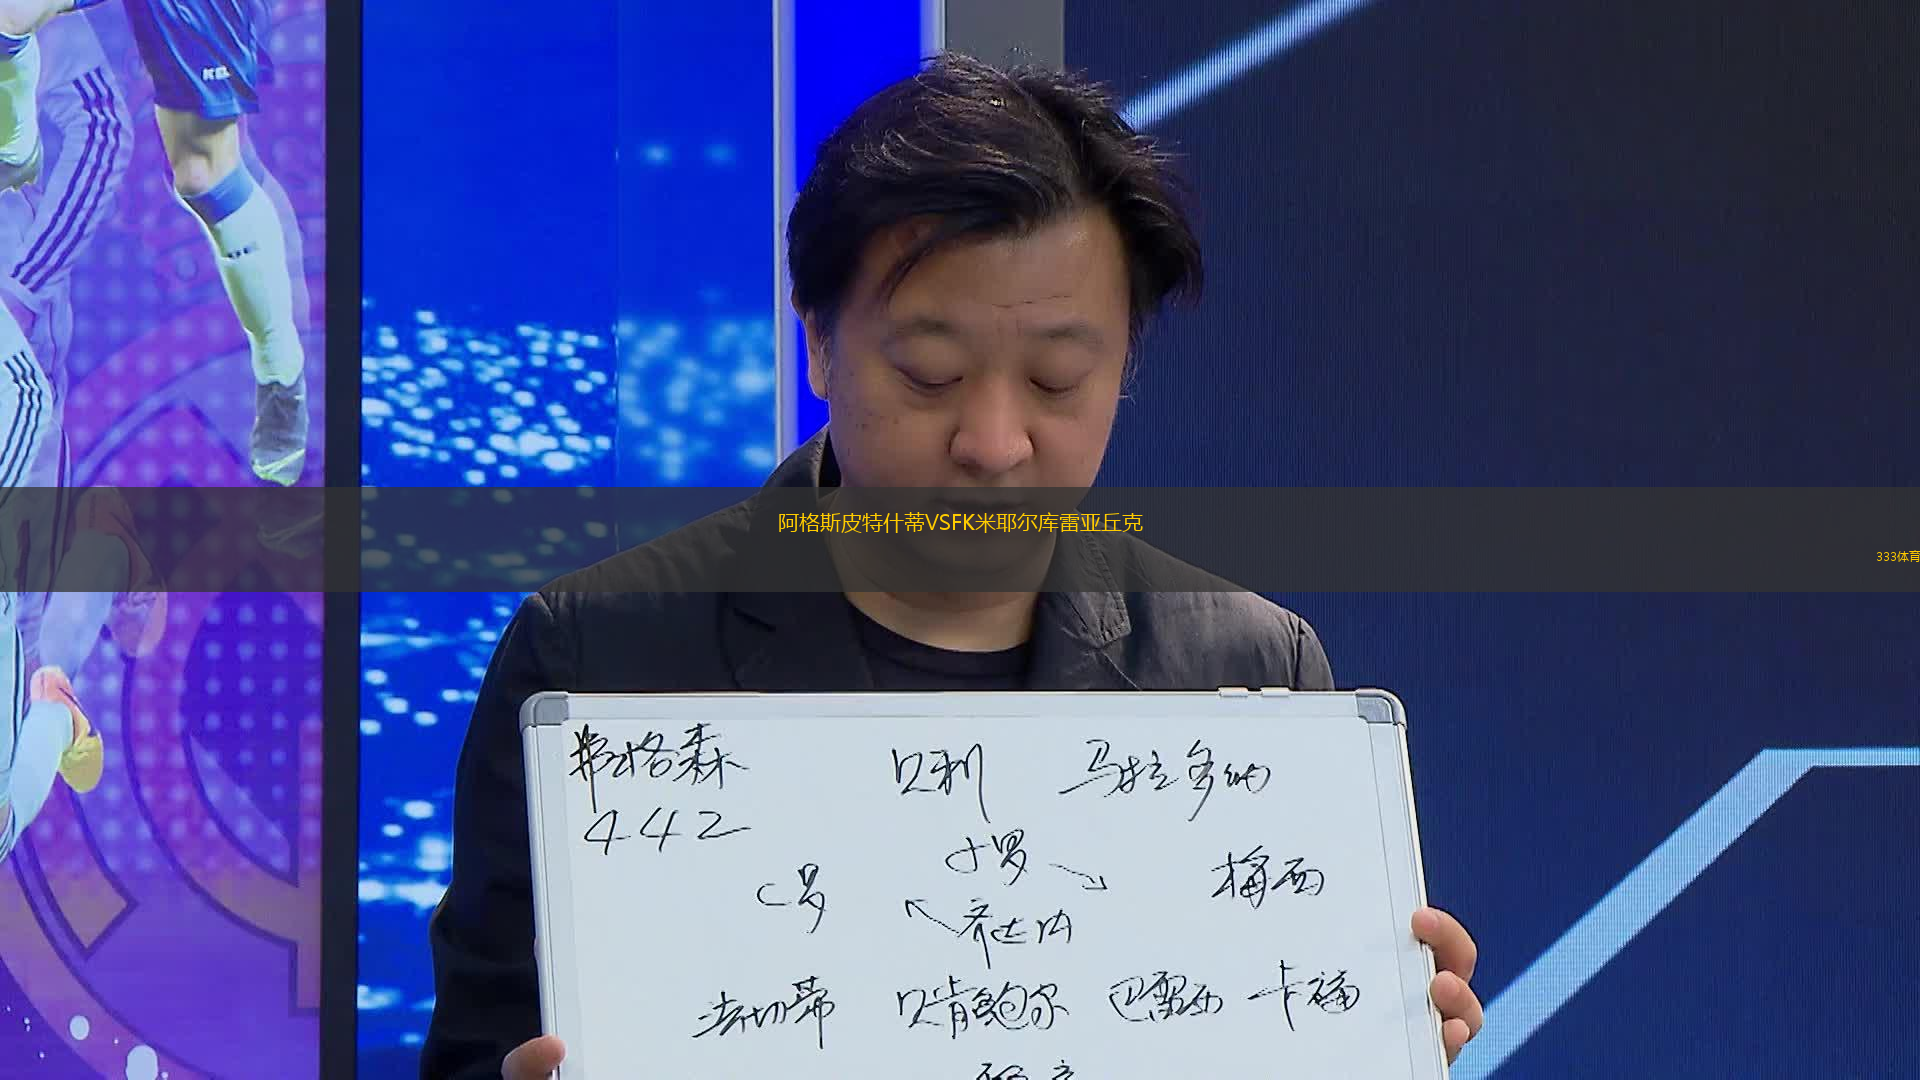 KEL
阿格斯皮特什蒂VSFK米耶尔库雷亚丘克
333体育
弗格森 贝利 马拉多纳
442
小罗
C罗 梅西
齐达内
法切蒂 贝肯鲍尔 巴雷西 卡福